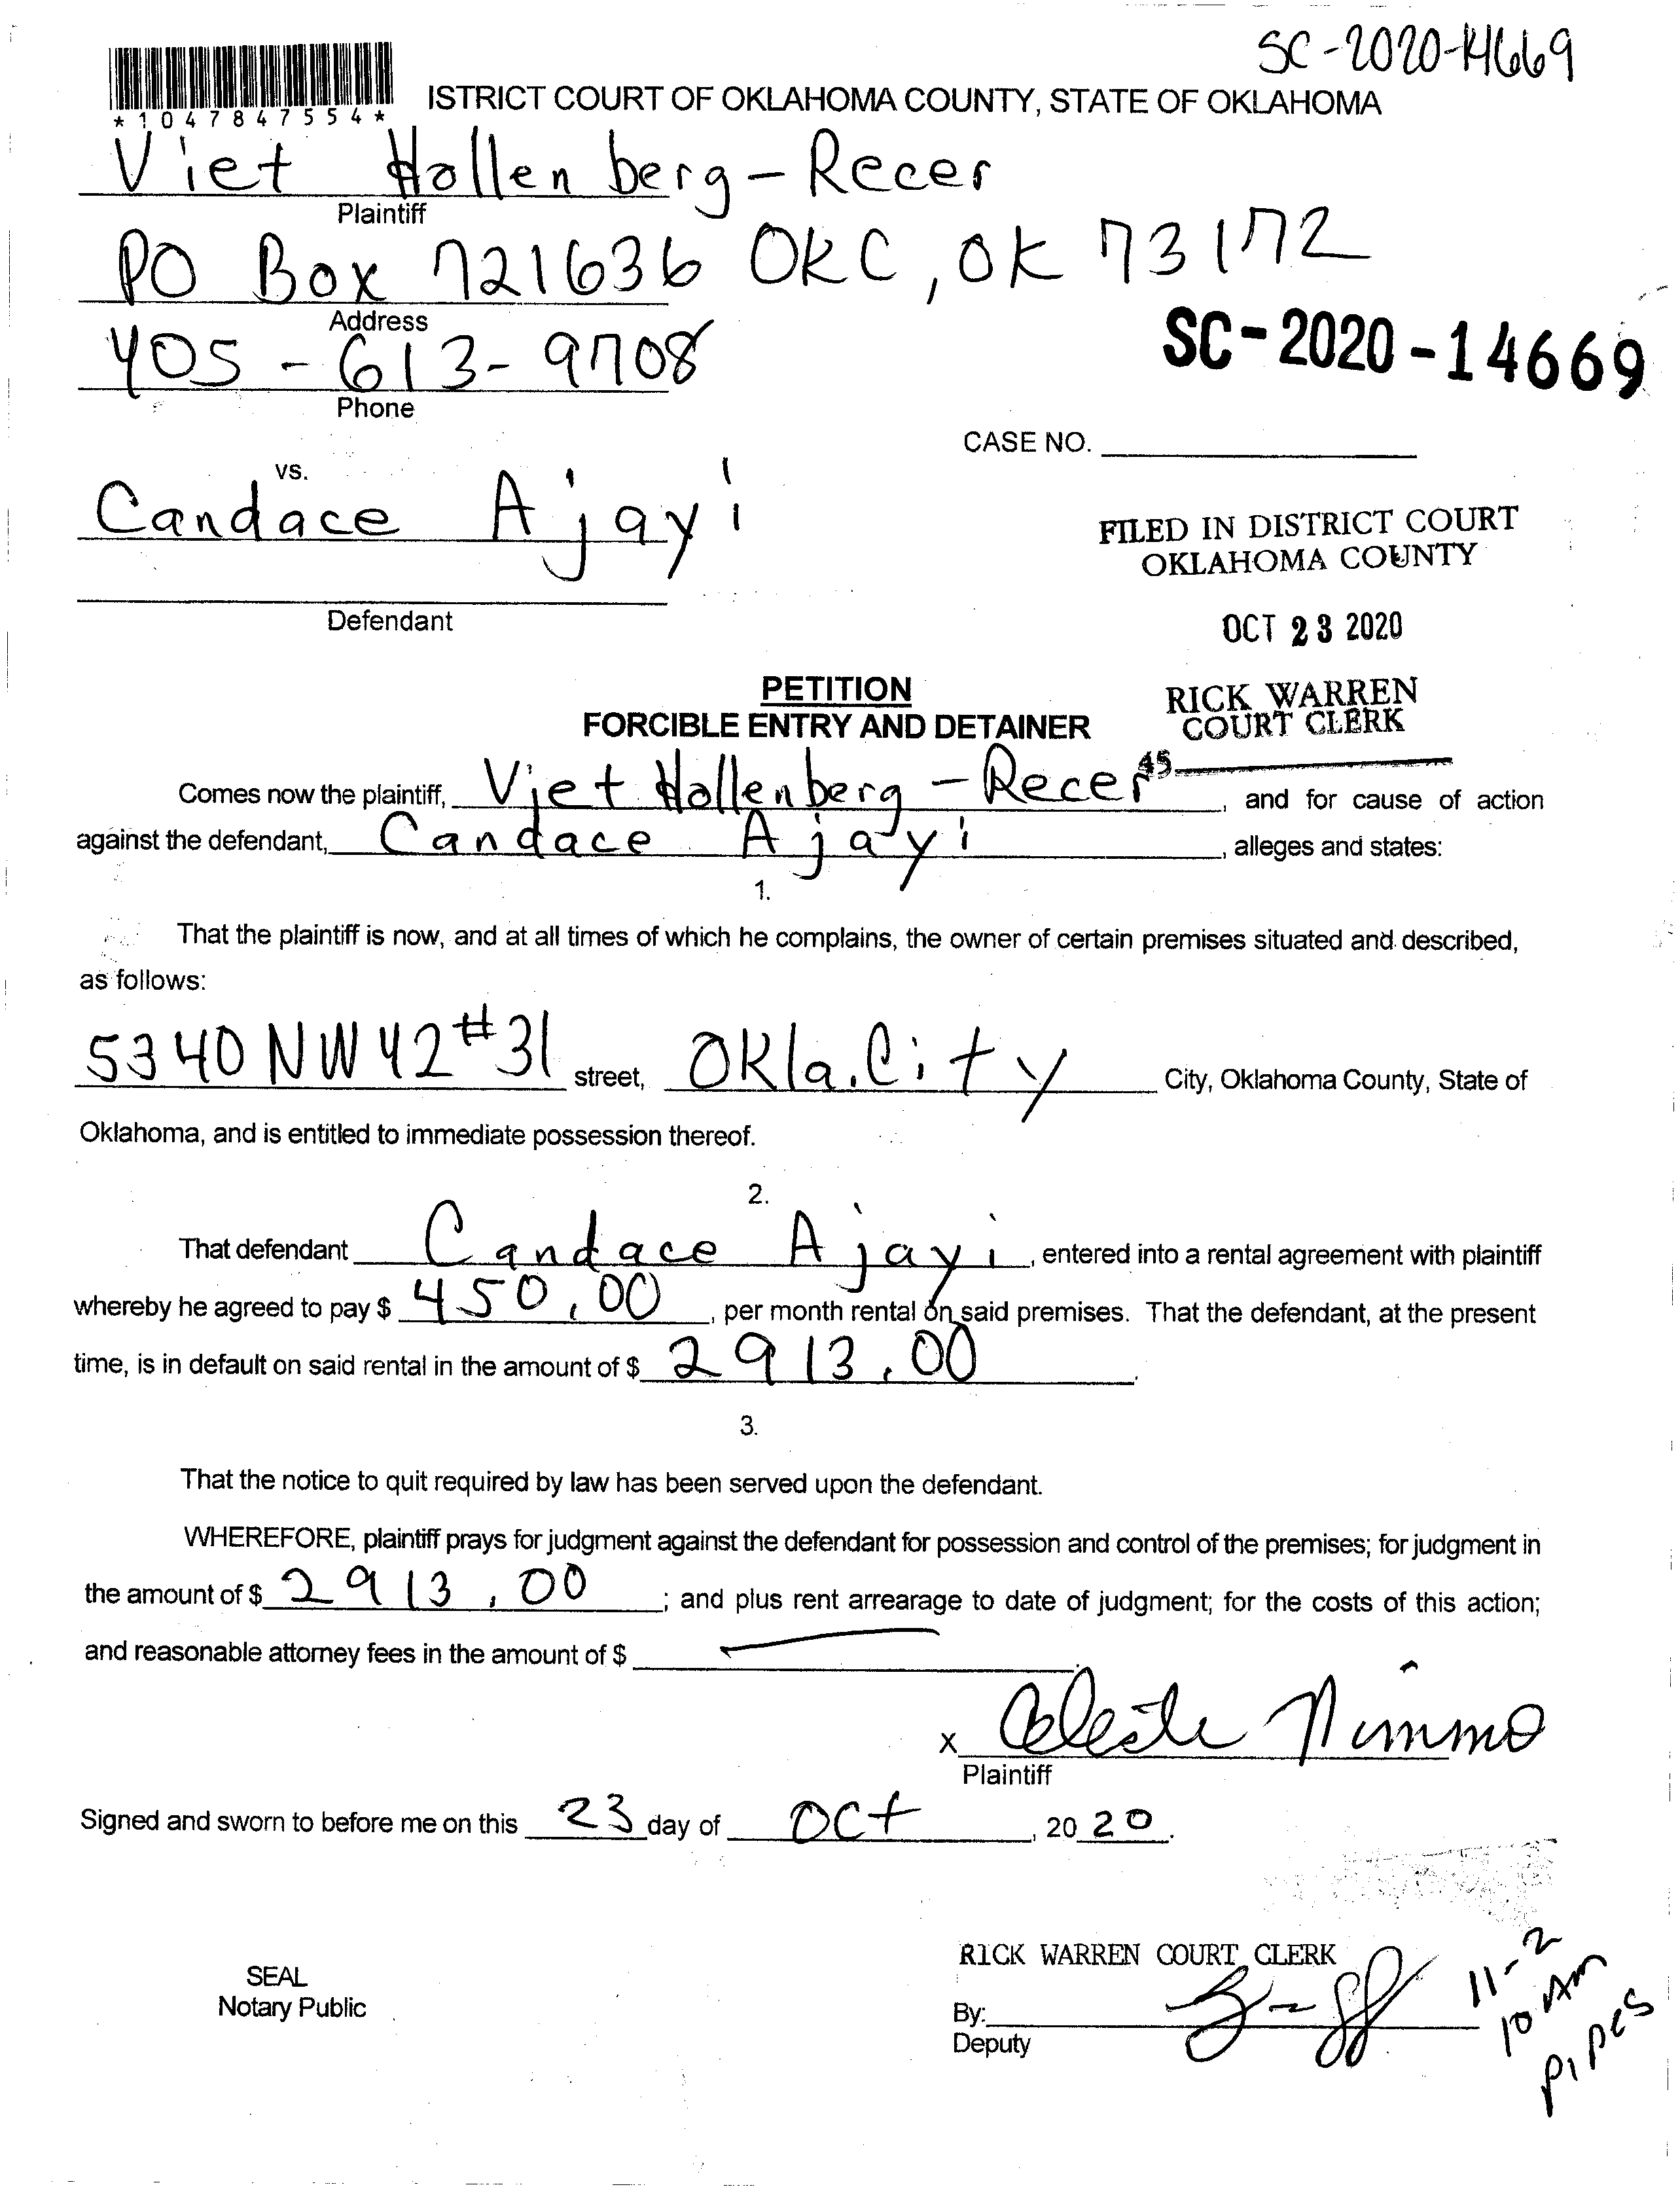 SC-2020-14669
*1047847554*
ISTRICT COURT OF OKLAHOMA COUNTY, STATE OF OKLAHOMA
Viet Hollenberg-Recer
Plaintiff
PO Box 721636 OKC, OK 73172
Address
SC-2020-14669
405-613-9708
Phone
CASE NO.
vs.
Candace Ajayi
FILED IN DISTRICT COURT
OKLAHOMA COUNTY
Defendant
OCT 23 2020
PETITION
FORCIBLE ENTRY AND DETAINER
RICK WARREN
COURT CLERK
45
Comes now the plaintiff, Viet Hollenberg-Recer, and for cause of action
against the defendant, Candace Ajayi, alleges and states:
1.
That the plaintiff is now, and at all times of which he complains, the owner of certain premises situated and described,
as follows:
5340 NW 42 #31 street, Okla. City City, Oklahoma County, State of
Oklahoma, and is entitled to immediate possession thereof.
2.
That defendant Candace Ajayi, entered into a rental agreement with plaintiff
whereby he agreed to pay $ 450.00, per month rental on said premises. That the defendant, at the present
time, is in default on said rental in the amount of $ 2913.00.
3.
That the notice to quit required by law has been served upon the defendant.
WHEREFORE, plaintiff prays for judgment against the defendant for possession and control of the premises; for judgment in
the amount of $ 2913.00; and plus rent arrearage to date of judgment; for the costs of this action;
and reasonable attorney fees in the amount of $
X Celeste Nimmo
Plaintiff
Signed and sworn to before me on this 23 day of Oct, 2020.
RICK WARREN COURT CLERK
SEAL
Notary Public
By:
Deputy
11-2
10 AM
Pipes